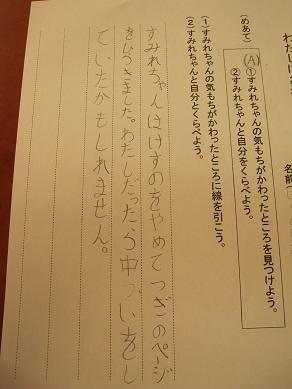 わたしは
名前
(めあて)
(A)①すみれちゃんの気もちがかわったところを見つけよう。
②すみれちゃんと自分をくらべよう。
(1)すみれちゃんの気もちがかわったところに線を引こう。
(2)すみれちゃんと自分とくらべよう。
すみれちゃんはけすのをやめてつぎのページ
をひらきました。わたしだったら中
ていたかもしれません。